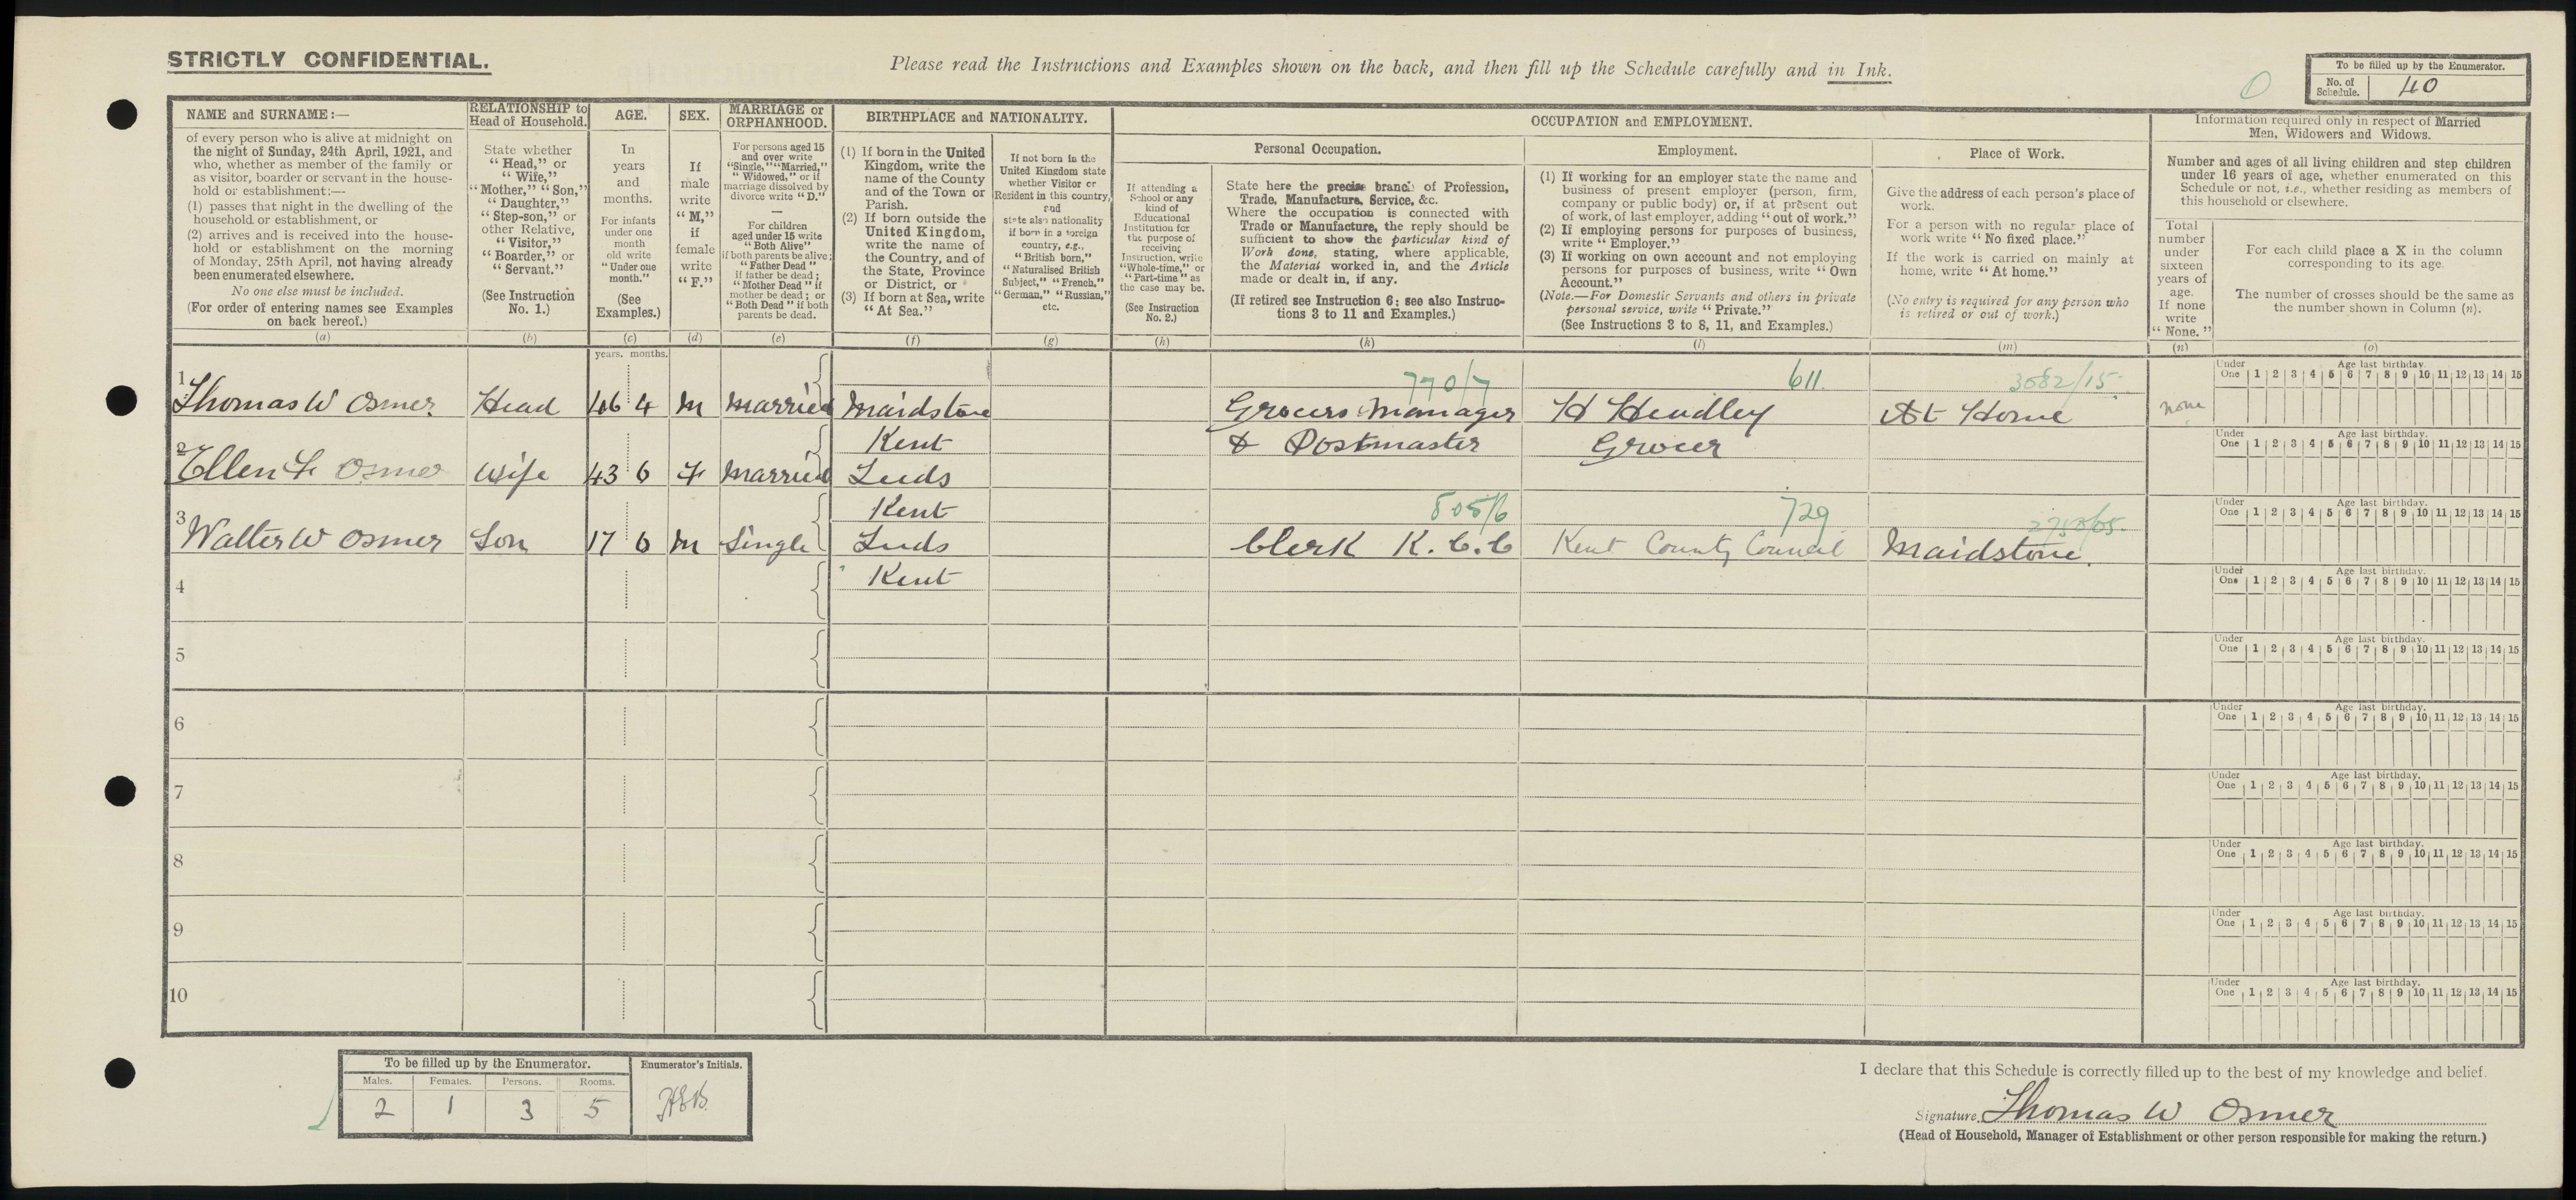 STRICTLY CONFIDENTIAL.
Please read the Instructions and Examples shown on the back, and then fill up the Schedule carefully and in Ink.
To be filled up by the Enumerator.
No. of Schedule. 40
0
NAME and SURNAME :—
of every person who is alive at midnight on
the night of Sunday, 24th April, 1921, and
who, whether as member of the family or
as visitor, boarder or servant in the house-
hold or establishment:—
(1) passes that night in the dwelling of the
household or establishment, or
(2) arrives and is received into the house-
hold or establishment on the morning
of Monday, 25th April, not having already
been enumerated elsewhere.
No one else must be included.
(For order of entering names see Examples
on back hereof.)
(a)
RELATIONSHIP to
Head of Household.
State whether
"Head," or
"Wife,"
"Mother," "Son,"
"Daughter,"
"Step-son," or
other Relative,
"Visitor,"
"Boarder," or
"Servant."
(See Instruction
No. 1.)
(b)
AGE.
In
years
and
months.
For infants
under one
month
old write
"Under one
month."
(See
Examples.)
(c)
SEX.
If
male
write
"M,"
if
female
write
"F."
(d)
MARRIAGE or
ORPHANHOOD.
For persons aged 15
and over write
"Single," "Married,"
"Widowed," or if
marriage dissolved by
divorce write "D."
—
For children
aged under 15 write
"Both Alive"
if both parents be alive;
"Father Dead"
if father be dead;
"Mother Dead" if
mother be dead; or
"Both Dead" if both
parents be dead.
(e)
BIRTHPLACE and NATIONALITY.
(1) If born in the United
Kingdom, write the
name of the County
and of the Town or
Parish.
(2) If born outside the
United Kingdom,
write the name of
the Country, and of
the State, Province
or District, or
(3) If born at Sea, write
"At Sea."
(f)
If not born in the
United Kingdom state
whether Visitor or
Resident in this country,
and
state also nationality
if born in a foreign
country, e.g.,
"British born,"
"Naturalised British
Subject," "French,"
"German," "Russian,"
etc.
(g)
OCCUPATION and EMPLOYMENT.
If attending a
School or any
kind of
Educational
Institution for
the purpose of
receiving
Instruction, write
"Whole-time," or
"Part-time" as
the case may be.
(See Instruction
No. 2.)
(h)
Personal Occupation.
State here the precise branch of Profession,
Trade, Manufacture, Service, &c.
Where the occupation is connected with
Trade or Manufacture, the reply should be
sufficient to show the particular kind of
Work done, stating, where applicable,
the Material worked in, and the Article
made or dealt in, if any.
(If retired see Instruction 6; see also Instruc-
tions 3 to 11 and Examples.)
(k)
Employment.
(1) If working for an employer state the name and
business of present employer (person, firm,
company or public body) or, if at present out
of work, of last employer, adding "out of work."
(2) If employing persons for purposes of business,
write "Employer."
(3) If working on own account and not employing
persons for purposes of business, write "Own
Account."
(Note.—For Domestic Servants and others in private
personal service, write "Private."
(See Instructions 3 to 8, 11, and Examples.)
(l)
Place of Work.
Give the address of each person's place of
work.
For a person with no regular place of
work write "No fixed place."
If the work is carried on mainly at
home, write "At home."
(No entry is required for any person who
is retired or out of work.)
(m)
Information required only in respect of Married
Men, Widowers and Widows.
Number and ages of all living children and step children
under 16 years of age, whether enumerated on this
Schedule or not, i.e., whether residing as members of
this household or elsewhere.
Total
number
under
sixteen
years of
age.
If none
write
"None."
(n)
For each child place a X in the column
corresponding to its age.
The number of crosses should be the same as
the number shown in Column (n).
(o)
years. months.
770/7 611. 3082/15
1 Thomas W Osmer. Head 46 4 M Married Maidstone Grocers Manager H Hendley At Home none
Kent & Postmaster Grocer
2 Ellen F Osmer Wife 43 6 F Married Leeds
Kent 805/6 729
3 Walter W Osmer Son 17 6 M Single Leeds Clerk K.C.C Kent County Council Maidstone.
Kent
4
5
6
7
8
9
10
Under One Age last birthday. 1 2 3 4 5 6 7 8 9 10 11 12 13 14 15
Under One Age last birthday. 1 2 3 4 5 6 7 8 9 10 11 12 13 14 15
Under One Age last birthday. 1 2 3 4 5 6 7 8 9 10 11 12 13 14 15
Under One Age last birthday. 1 2 3 4 5 6 7 8 9 10 11 12 13 14 15
Under One Age last birthday. 1 2 3 4 5 6 7 8 9 10 11 12 13 14 15
Under One Age last birthday. 1 2 3 4 5 6 7 8 9 10 11 12 13 14 15
Under One Age last birthday. 1 2 3 4 5 6 7 8 9 10 11 12 13 14 15
Under One Age last birthday. 1 2 3 4 5 6 7 8 9 10 11 12 13 14 15
Under One Age last birthday. 1 2 3 4 5 6 7 8 9 10 11 12 13 14 15
Under One Age last birthday. 1 2 3 4 5 6 7 8 9 10 11 12 13 14 15
To be filled up by the Enumerator.
Males. Females. Persons. Rooms.
2 1 3 5
Enumerator's Initials.
I declare that this Schedule is correctly filled up to the best of my knowledge and belief.
Signature Thomas W Osmer
(Head of Household, Manager of Establishment or other person responsible for making the return.)